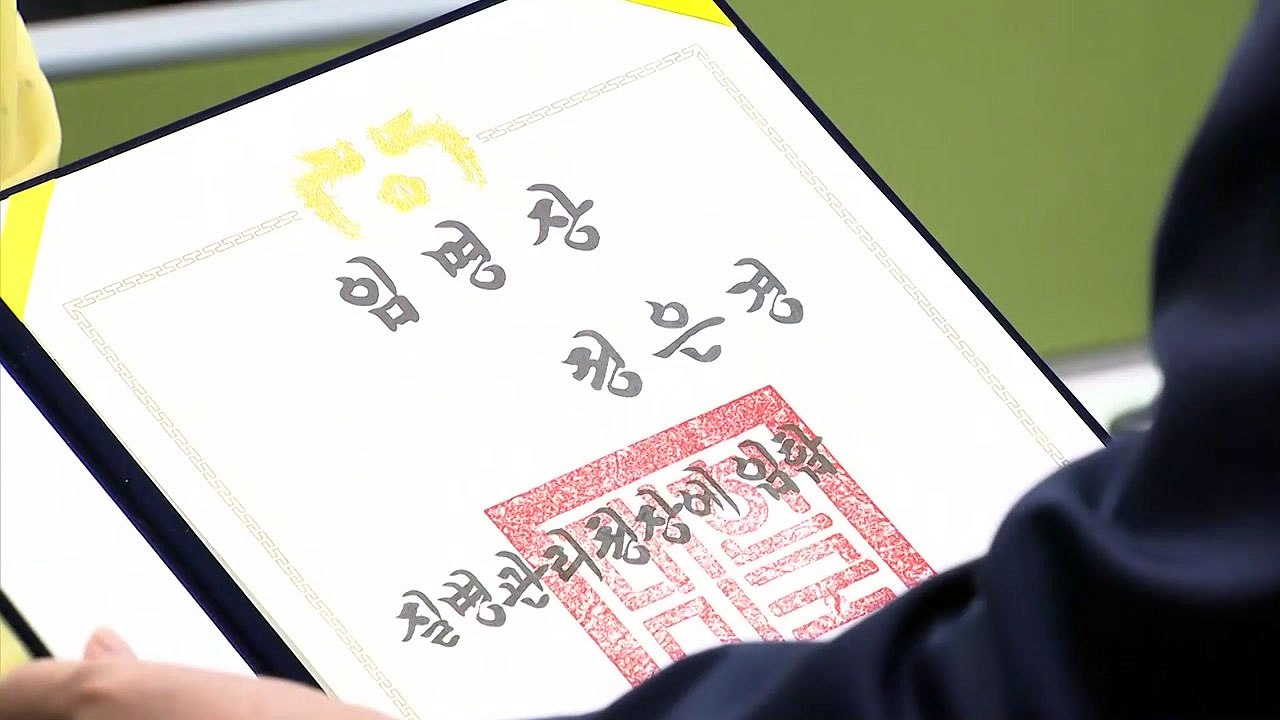 임명장
정은경
질병관리청장에 임함